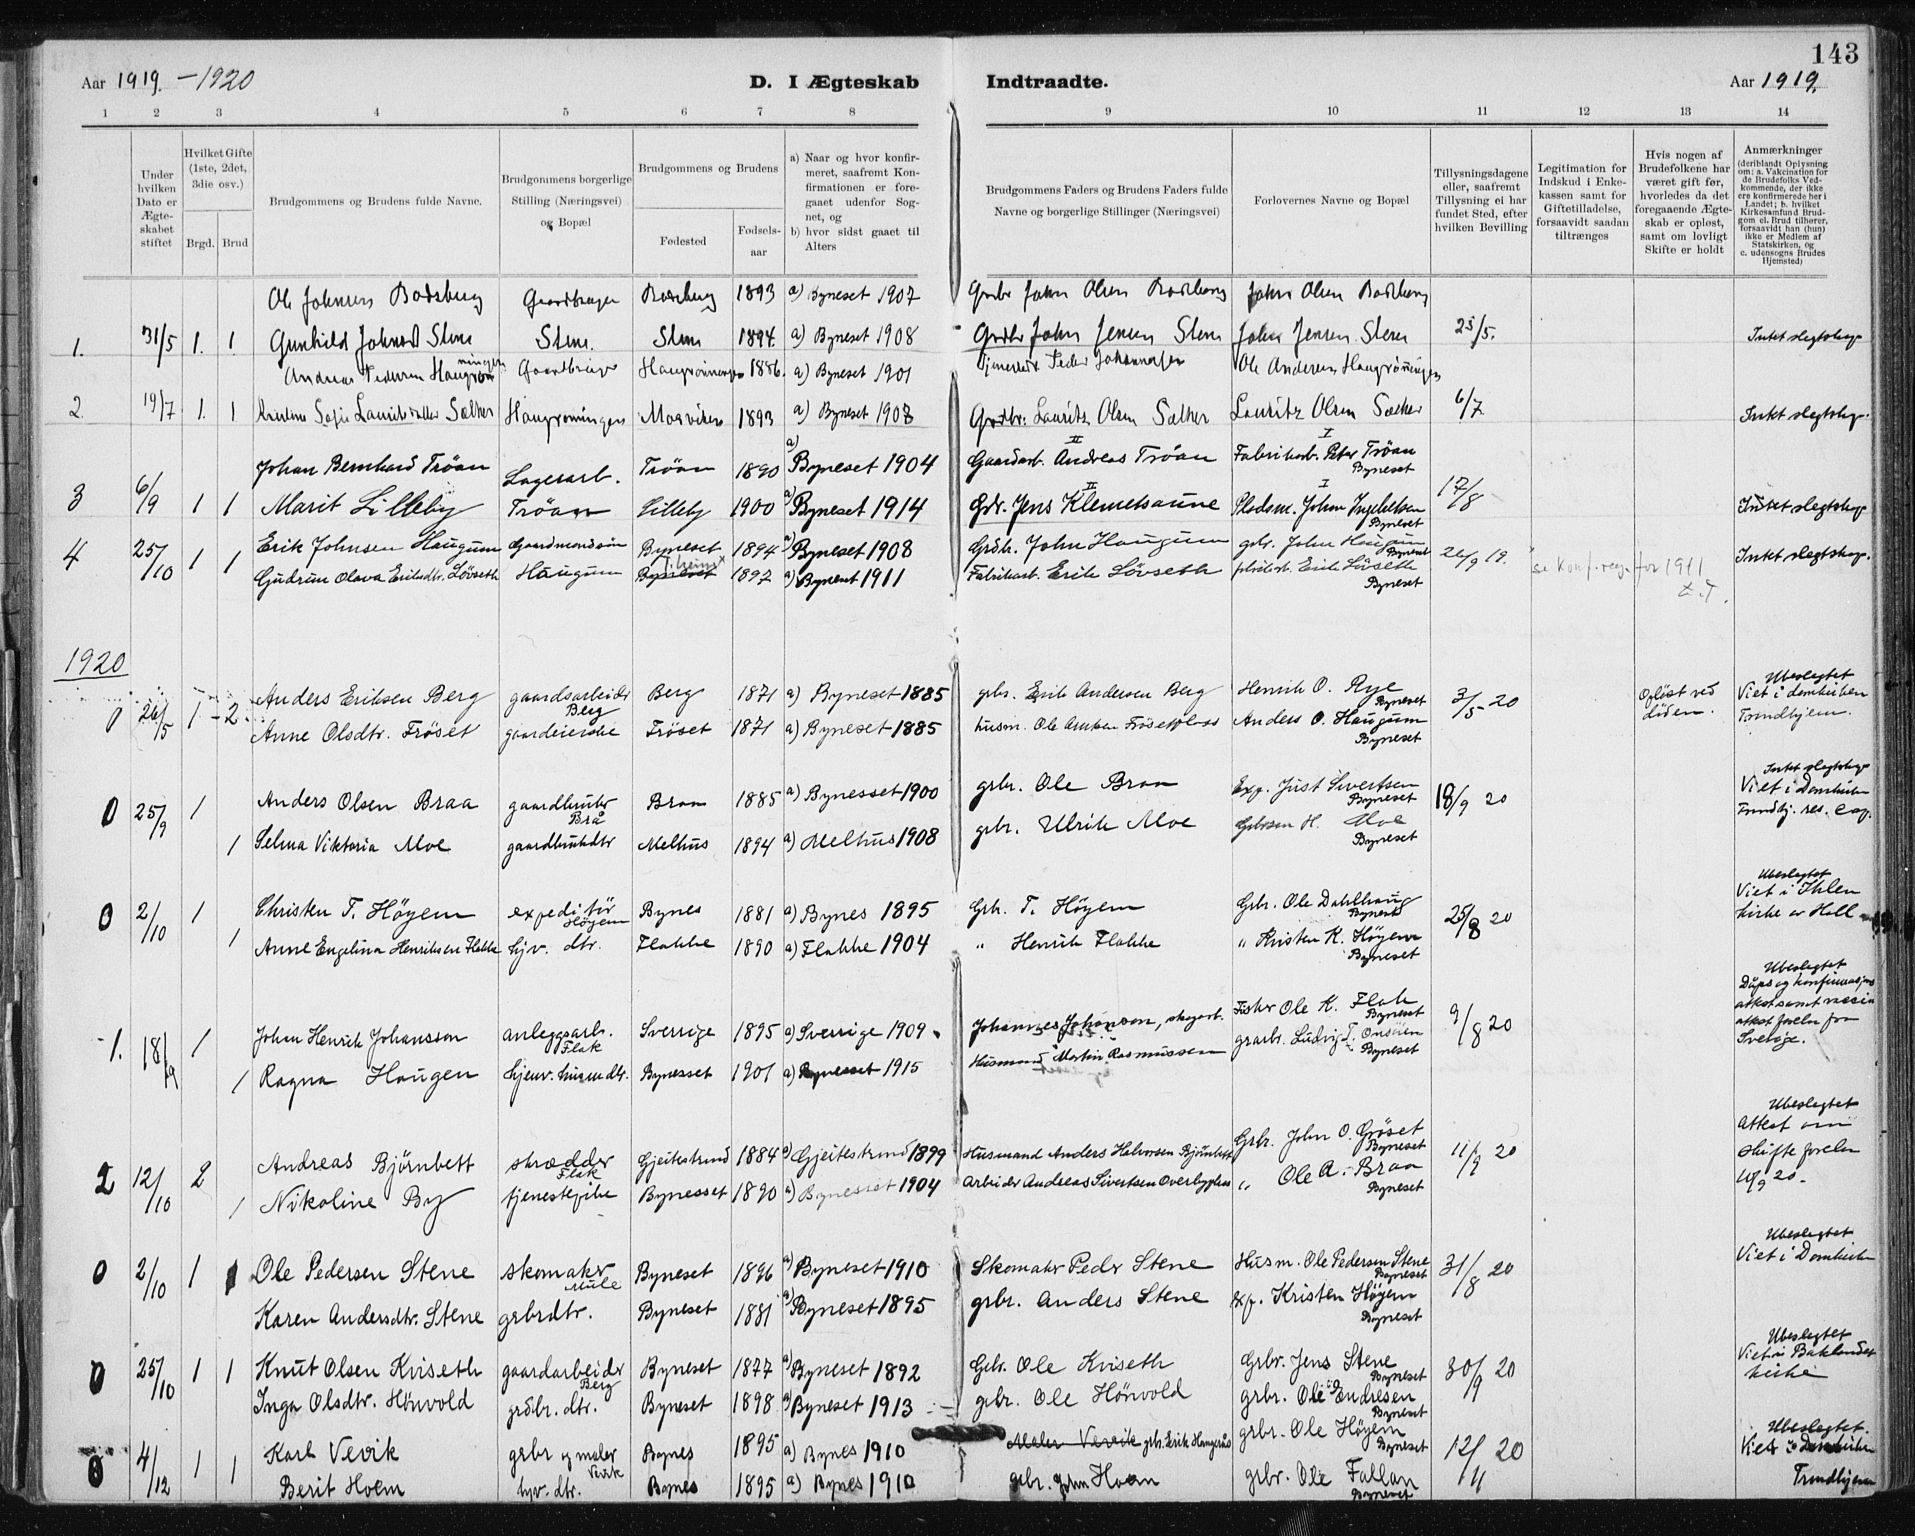 143
Aar 1919 - 1920 D. I Ægteskab Indtraadte. Aar 1919.
1 2 3 4 5 6 7 8 9 10 11 12 13 14
Under hvilken Dato er Ægteskabet stiftet
Hvilket Gifte (1ste, 2det, 3die osv.)
Brgd. Brud
Brudgommens og Brudens fulde Navne.
Brudgommens borgerlige Stilling (Næringsvei) og Bopæl
Brudgommens og Brudens
Fødested
Fødselsaar
a) Naar og hvor konfirmeret, saafremt Konfirmationen er foregaaet udenfor Sognet, og
b) hvor sidst gaaet til Alters
Brudgommens Faders og Brudens Faders fulde Navne og borgerlige Stillinger (Næringsvei)
Forlovernes Navne og Bopæl
Tillysningsdagene eller, saafremt Tillysning ei har fundet Sted, efter hvilken Bevilling
Legitimation for Indskud i Enkekassen samt for Giftetilladelse, forsaavidt saadan tiltrænges
Hvis nogen af Brudefolkene har været gift før, hvorledes da det foregaaende Ægteskab er opløst, samt om lovligt Skifte er holdt
Anmærkninger (deriblandt Oplysning om: a. Vakcination for de Brudefolks Vedkommende, der ikke ere konfirmerede her i Landet; b. hvilket Kirkesamfund Brudgom el. Brud tilhører, forsaavidt han (hun) ikke er Medlem af Statskirken, og c. udensogns Brudes Hjemsted)
Ole Johnsen Bodsberg Gaardbruger Bodsberg 1893 a) Byneset 1907 Grdbr John Olsen Bodsberg John Olsen Bodsberg
1. 31/5 1. 1 Gunhild Johnsd Stene Stene. Stene 1894. a) Byneset 1908 Grdbr John Jensen Stene John Jensen Stene 25/5. Intet slegtskap
Andreas Pedersen Haugrønningen Gaardbruger Haugrønningen 1886. a) Byneset 1901 Peder Johannesen Ole Andersen Haugrønningen
2. 19/7 1. 1 Kristine Sofie Lauritsdatter Sæther Haugrønningen Mosviken 1893 a) Byneset 1907 Grdbr. Lauritz Olsen Sæther Lauritz Olsen Sæther 6/7 Intet slegtskap.
Johan Bernhard Tröan Lagerarb. Tröan 1890 a) Byneset 1904 Gaardarb. Andreas Tröan Fabrikarb. Peter Tröan Byneset
3 6/9 1 1 Marit Lilleby Tröan Lilleby 1900 a) Byneset 1914 Gdr. Jens Klemetsaune Pladsm. Johan Ingebrigtsen Byneset 17/8 Intet slegtskap
4 25/10 1 1 Erik Johnsen Haugum Gaardmandssön Byneset 1894 a) Byneset 1908 Grdbr. John Haugum grbr. John Haugum Byneset 26/9 19. Intet slegtskap.
Gudrun Olava Eriksdtr. Lövseth Haugum Byneset 1897 a) Byneset 1911 Fabrikarb. Erik Lövseth Erik Lövseth Byneset se konf.reg. for 1911
1920
0 26/5 1 - 2 Anders Eriksen Berg gaardsarbeider Berg Berg 1871 a) Byneset 1885 grbr. Erik Andersen Berg Henrik O. Rye Byneset 3/5 - 20 Oplöst ved döden. Ubeslegtet Viet i domkirken Trondhjem.
Anne Olsdtr. Fröset gaardeierske Fröset 1871 a) Byneset 1885 husm. Ole Fröset Anders O. Haugum Byneset
0 25/9 1 Anders Olsen Braa gaardbruker Brå Braa 1885 a) Bynesset 1900 grbr. Ole Braa Exp. Just Sivertsen Byneset 18/9 20 Intet slegtskap Viet i Domkirken Trondhj. res. cap.
1 Selma Viktoria Moe gaardbrukdtr Melhus 1894 a) Melhus 1908 grbr. Ulrik Moe H. Moe Byneset
0 2/10 1 Christen T. Höyem expeditör Höyem Bynes 1881 a) Bynes 1895 Grbr. T. Höyem Grbr. Ole Dahlhaug Byneset 25/8 20 Ubeslegtet Viet i Ihlen kirke av Hall
1 Anne Engelina Henriksen Flakke hjv. dtr. Flakke 1890 a) Flakke 1904 " Henrik Flakke " Kristen K. Höyem Byneset
1. 18/9 1 Johan Henrik Johansson anleggsarb. Flak Sverrige 1895 a) Sverrige 1909 Johannes Johanson, skogarb. Fisker Ole K. Flak Byneset 9/8 20 Ubeslegtet Dåps og konfirmasjons attest samt vaccin attest forelå fra Sverige.
1 Ragna Haugen hjemv. husmdtr. Bynesset 1901 a) Bynesset 1915 Husmand Martin Rasmussen grarb. Ludvig T. Byneset
2 12/10 2 Andreas Björnbett skrædder Flak Gjeitestrand 1884 a) Gjeitestrand 1899 Husmand Anders Halvorsen Björnbett Grbr. John O. Gröset Byneset 11/9 20 Ubeslegtet Attest om skifte forelå 11/9 20.
1 Nikoline By tjenestepike Bynesset 1890 a) Bynesset 1904 Arbeider Andreas Sivertsen Overbyplads " Ole A. Braa Byneset
0 2/10 1 1 Ole Pedersen Stene skomaker Mule Byneset 1896 a) Byneset 1910 Skomaker Peder Stene Husm. Ole Pedersen Stene Byneset 31/8 20 Ubeslegtet Viet i Domkirken
Karen Andersdtr. Stene grbrdtr. Byneset 1881 a) Byneset 1895 grbr. Anders Stene exp. Kristen Höyem Byneset
0 25/10 1 1 Knut Olsen Kviseth gaardarbeider Berg Byneset 1877 a) Byneset 1892 Grbr. Ole Kviseth Grbr. Jens Stene Byneset 30/9 20 Ubeslegtet Viet i Baklandet kirke
Inga Olsdtr. Hönvold grdbr. dtr. Byneset 1898 a) Byneset 1913 grbr. Ole Hönvold grbr. Ole Endresen Byneset
0 4/12 1 1 Karl Vevik grbr og maler Vevik Bynes 1895 a) Bynes 1910 Maler Vevik grbr. Erik grbr. Ole Höyem Byneset 12/11 20 Ubeslegtet. Viet i Domkirken Trondhjem
Berit Hoem hjv. dtr. Bynes 1895 a) Bynes 1910 grbr. John Hoem grbr. Ole Fallan Byneset